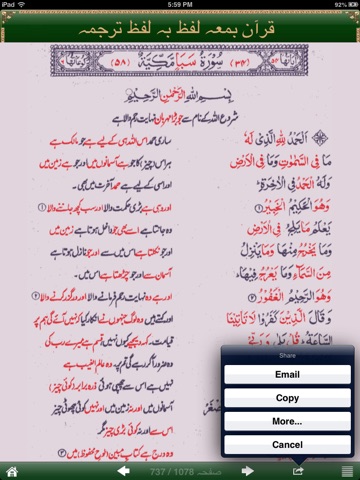 iPad
5:59 PM
92%
قرآن بمعہ لفظ بہ لفظ ترجمہ
(۳۴) سُوْرَةُ سَبَا مَكِّيَّةٌ (۵۸)
بِسْمِ اللّٰهِ الرَّحْمٰنِ الرَّحِيْمِ
شروع اللہ کے نام سے جو بڑا مہربان نہایت رحم والا ہے
اَلْحَمْدُ لِلّٰهِ الَّذِیْ لَهٗ
مَا فِی السَّمٰوٰتِ وَمَا فِی الْاَرْضِ
وَلَهُ الْحَمْدُ فِی الْاٰخِرَةِ
وَهُوَ الْحَكِیْمُ الْخَبِیْرُ ①
یَعْلَمُ مَا یَلِجُ فِی الْاَرْضِ
وَمَا یَخْرُجُ مِنْهَا وَمَا یَنْزِلُ
مِنَ السَّمَآءِ وَمَا یَعْرُجُ فِیْهَا
وَهُوَ الرَّحِیْمُ الْغَفُوْرُ ②
وَقَالَ الَّذِیْنَ كَفَرُوْا لَا تَاْتِیْنَا
السَّاعَةُ قُلْ بَلٰی وَرَبِّیْ
ساری حمد اس اللہ ہی کے لیے ہے جو مالک ہے
ہر اس (چیز) کا جو ہے آسمانوں میں اور جو ہے زمین میں
اور اسی کے لیے ہے حمد آخرت میں بھی۔
اور وہی ہے بڑی حکمت والا اور سب کچھ جاننے والا ①
وہ جانتا ہے اسے بھی جو داخل ہوتا ہے زمین میں
اور جو نکلتا ہے اس میں سے اور جو نازل ہوتا ہے
آسمان سے اور جو چڑھتا ہے اس میں۔
اور ہے وہ نہایت رحم فرمانے والا اور درگزر کرنے والا ②
اور کہتے ہیں وہ لوگ جنہوں نے انکار کیا کہ نہیں آئے گی ہم پر
قیامت۔ کہہ دیجیے کیوں نہیں قسم ہے میرے رب کی
وہ ضرور آ کر رہے گی تم پر، جو ہے وہ عالم الغیب ہے
نہیں ہے اس سے چھپی ہوئی ذرہ برابر (کوئی چیز)
آسمانوں میں اور نہ زمین میں اور نہیں کوئی چھوٹی چیز
اور نہ کوئی بڑی چیز مگر
وہ درج ہے کتاب مبین (لوح محفوظ) میں
Share
Email
Copy
More...
Cancel
صفحہ 737 / 1078